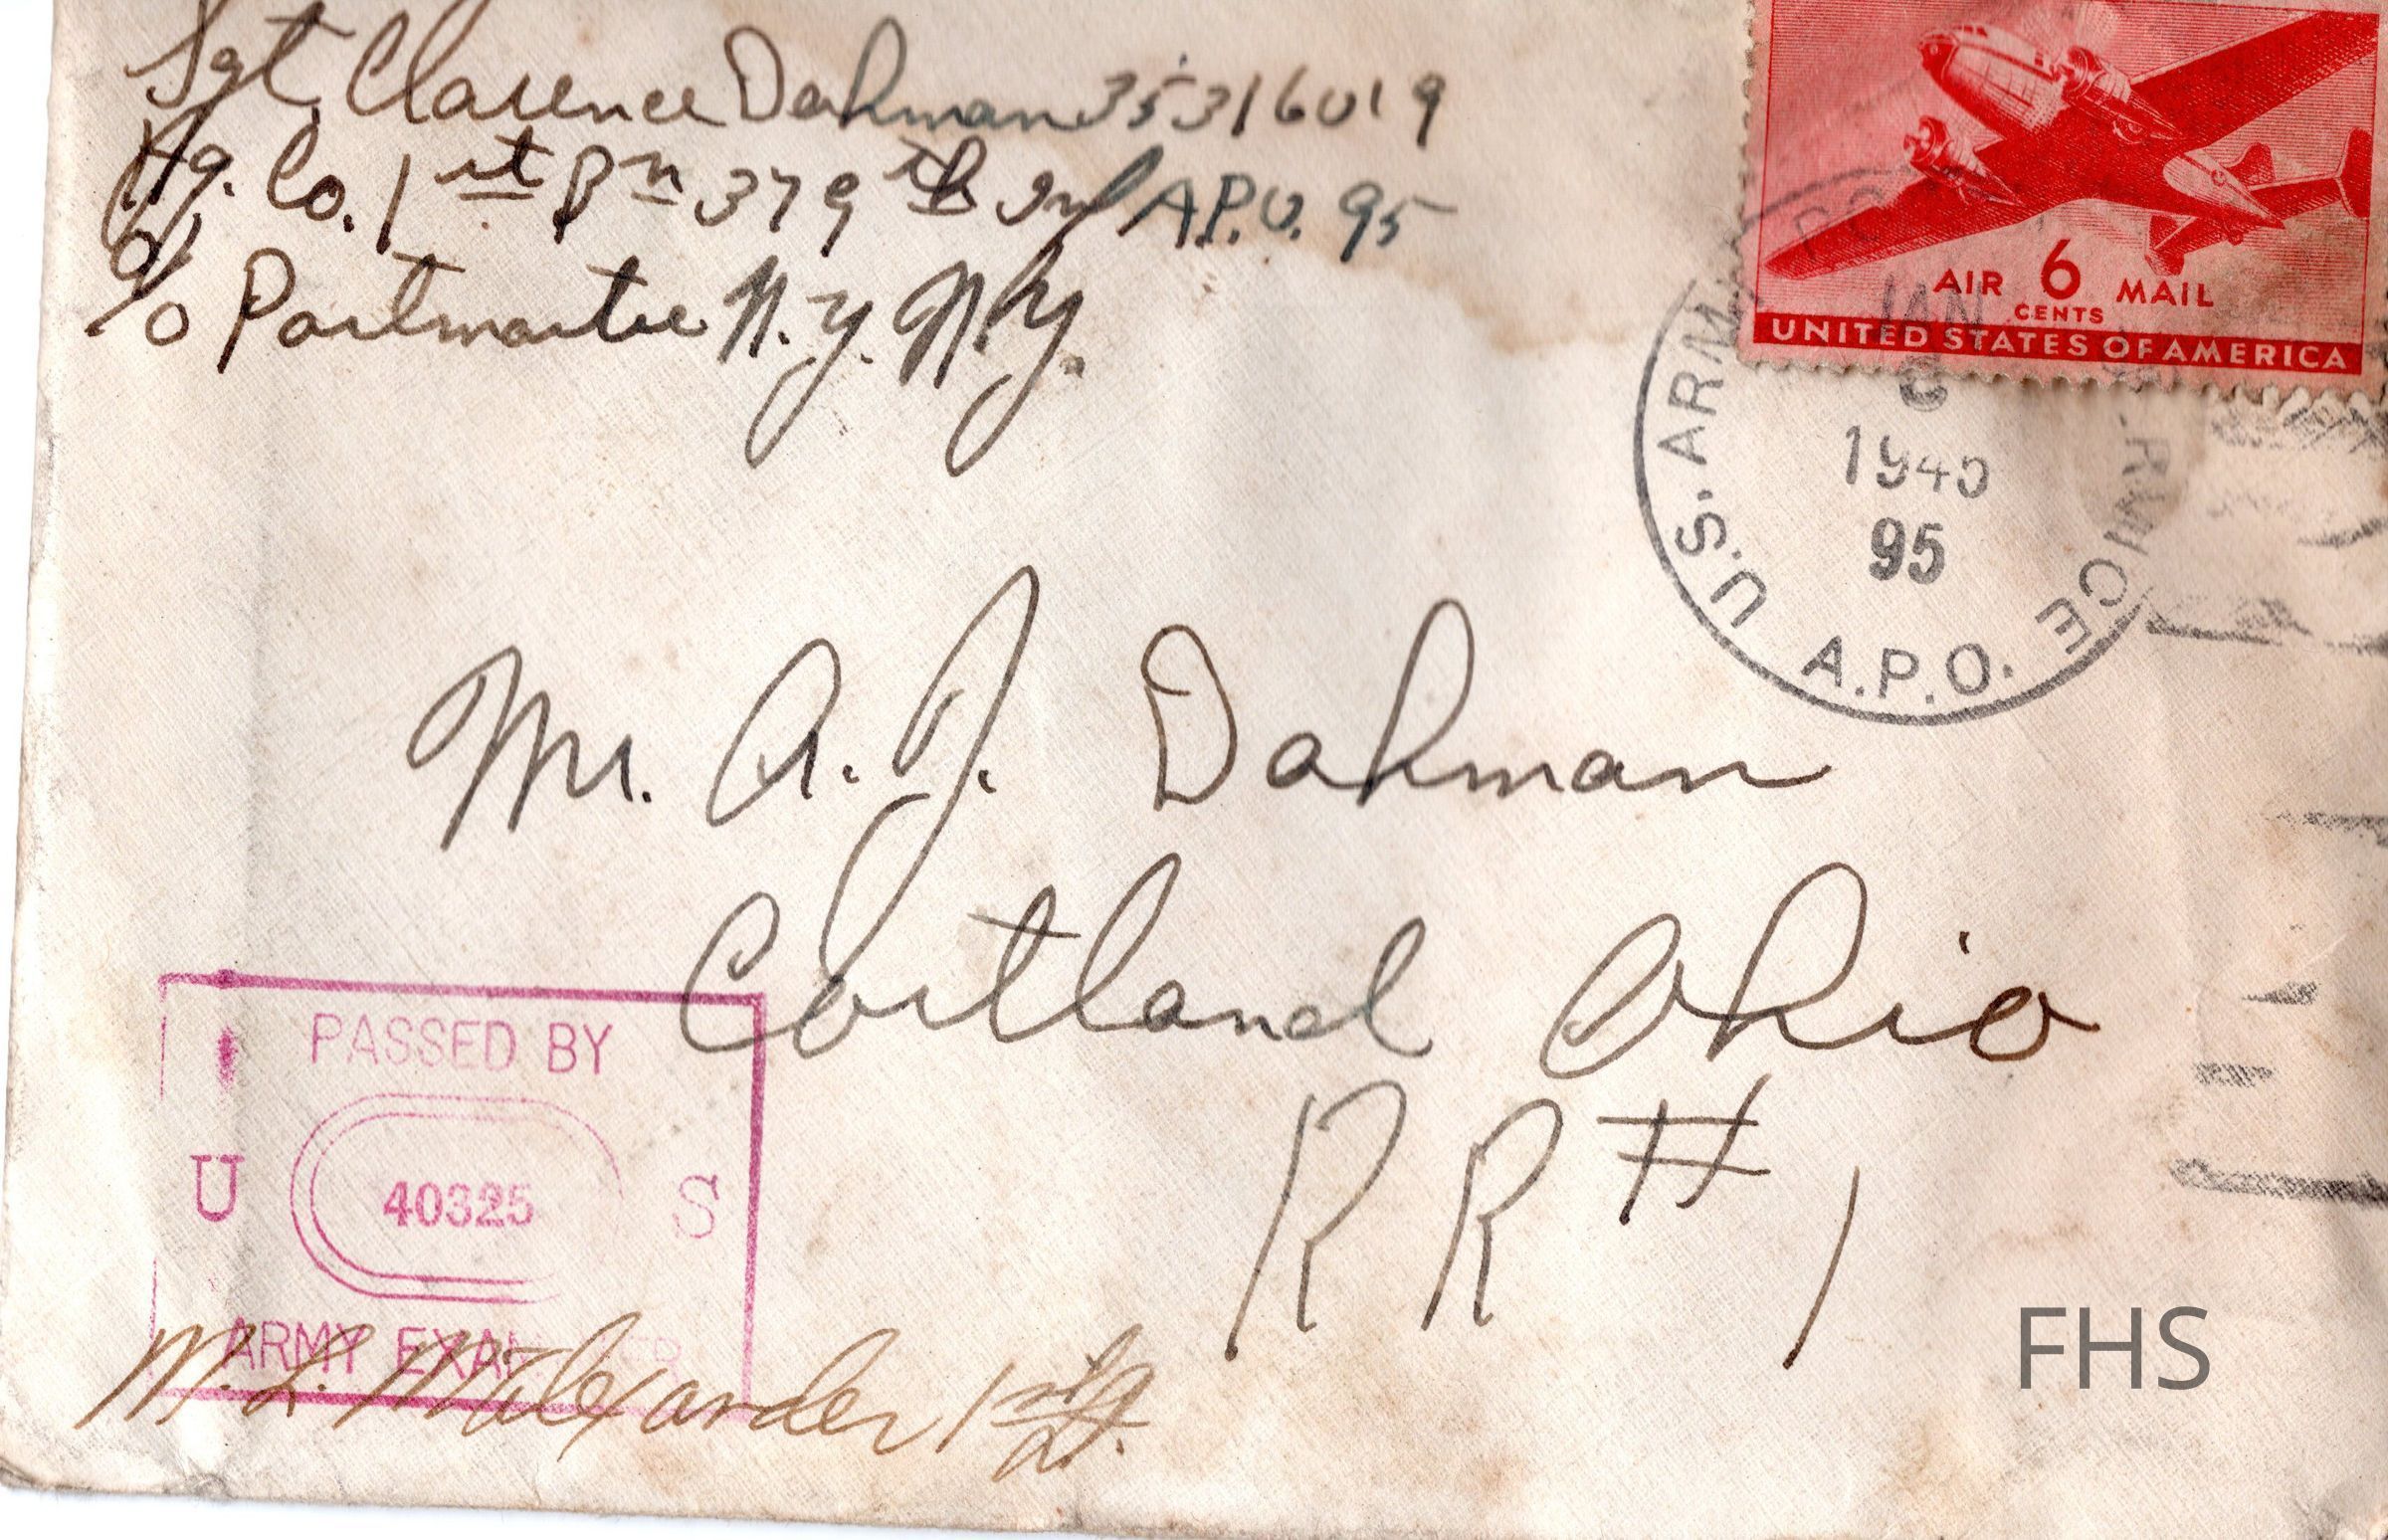 Sgt. Clarence Dahman 35316019
Hq. Co. 1st Bn 379th Inf A.P.O. 95
c/o Postmaster N.Y. N.Y.
AIR 6 MAIL
CENTS
UNITED STATES OF AMERICA
U.S. ARMY
JAN
1945
95
A.P.O.
Mr. A. J. Dahman
Cortland Ohio
RR # 1
PASSED BY
U 40325 S
ARMY EXAMINER
Alexander 1st Lt.
FHS